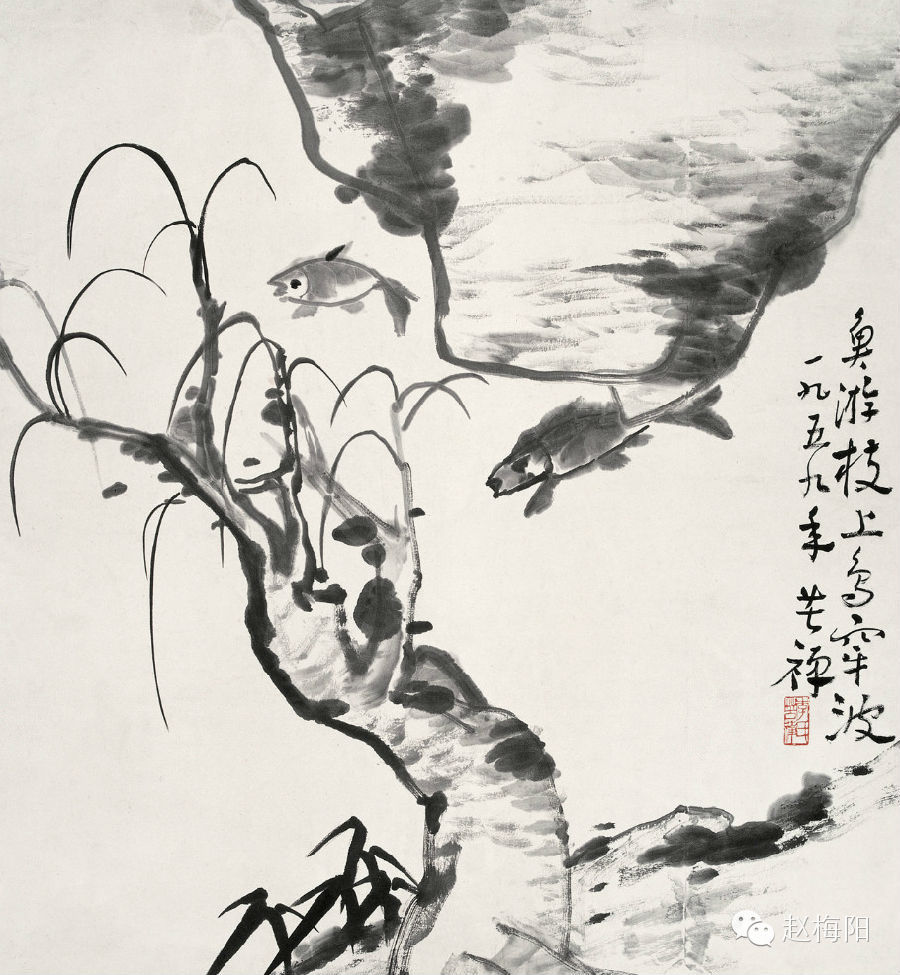 魚游枝上鳥穿波
一九五九年 苦禅
赵梅阳